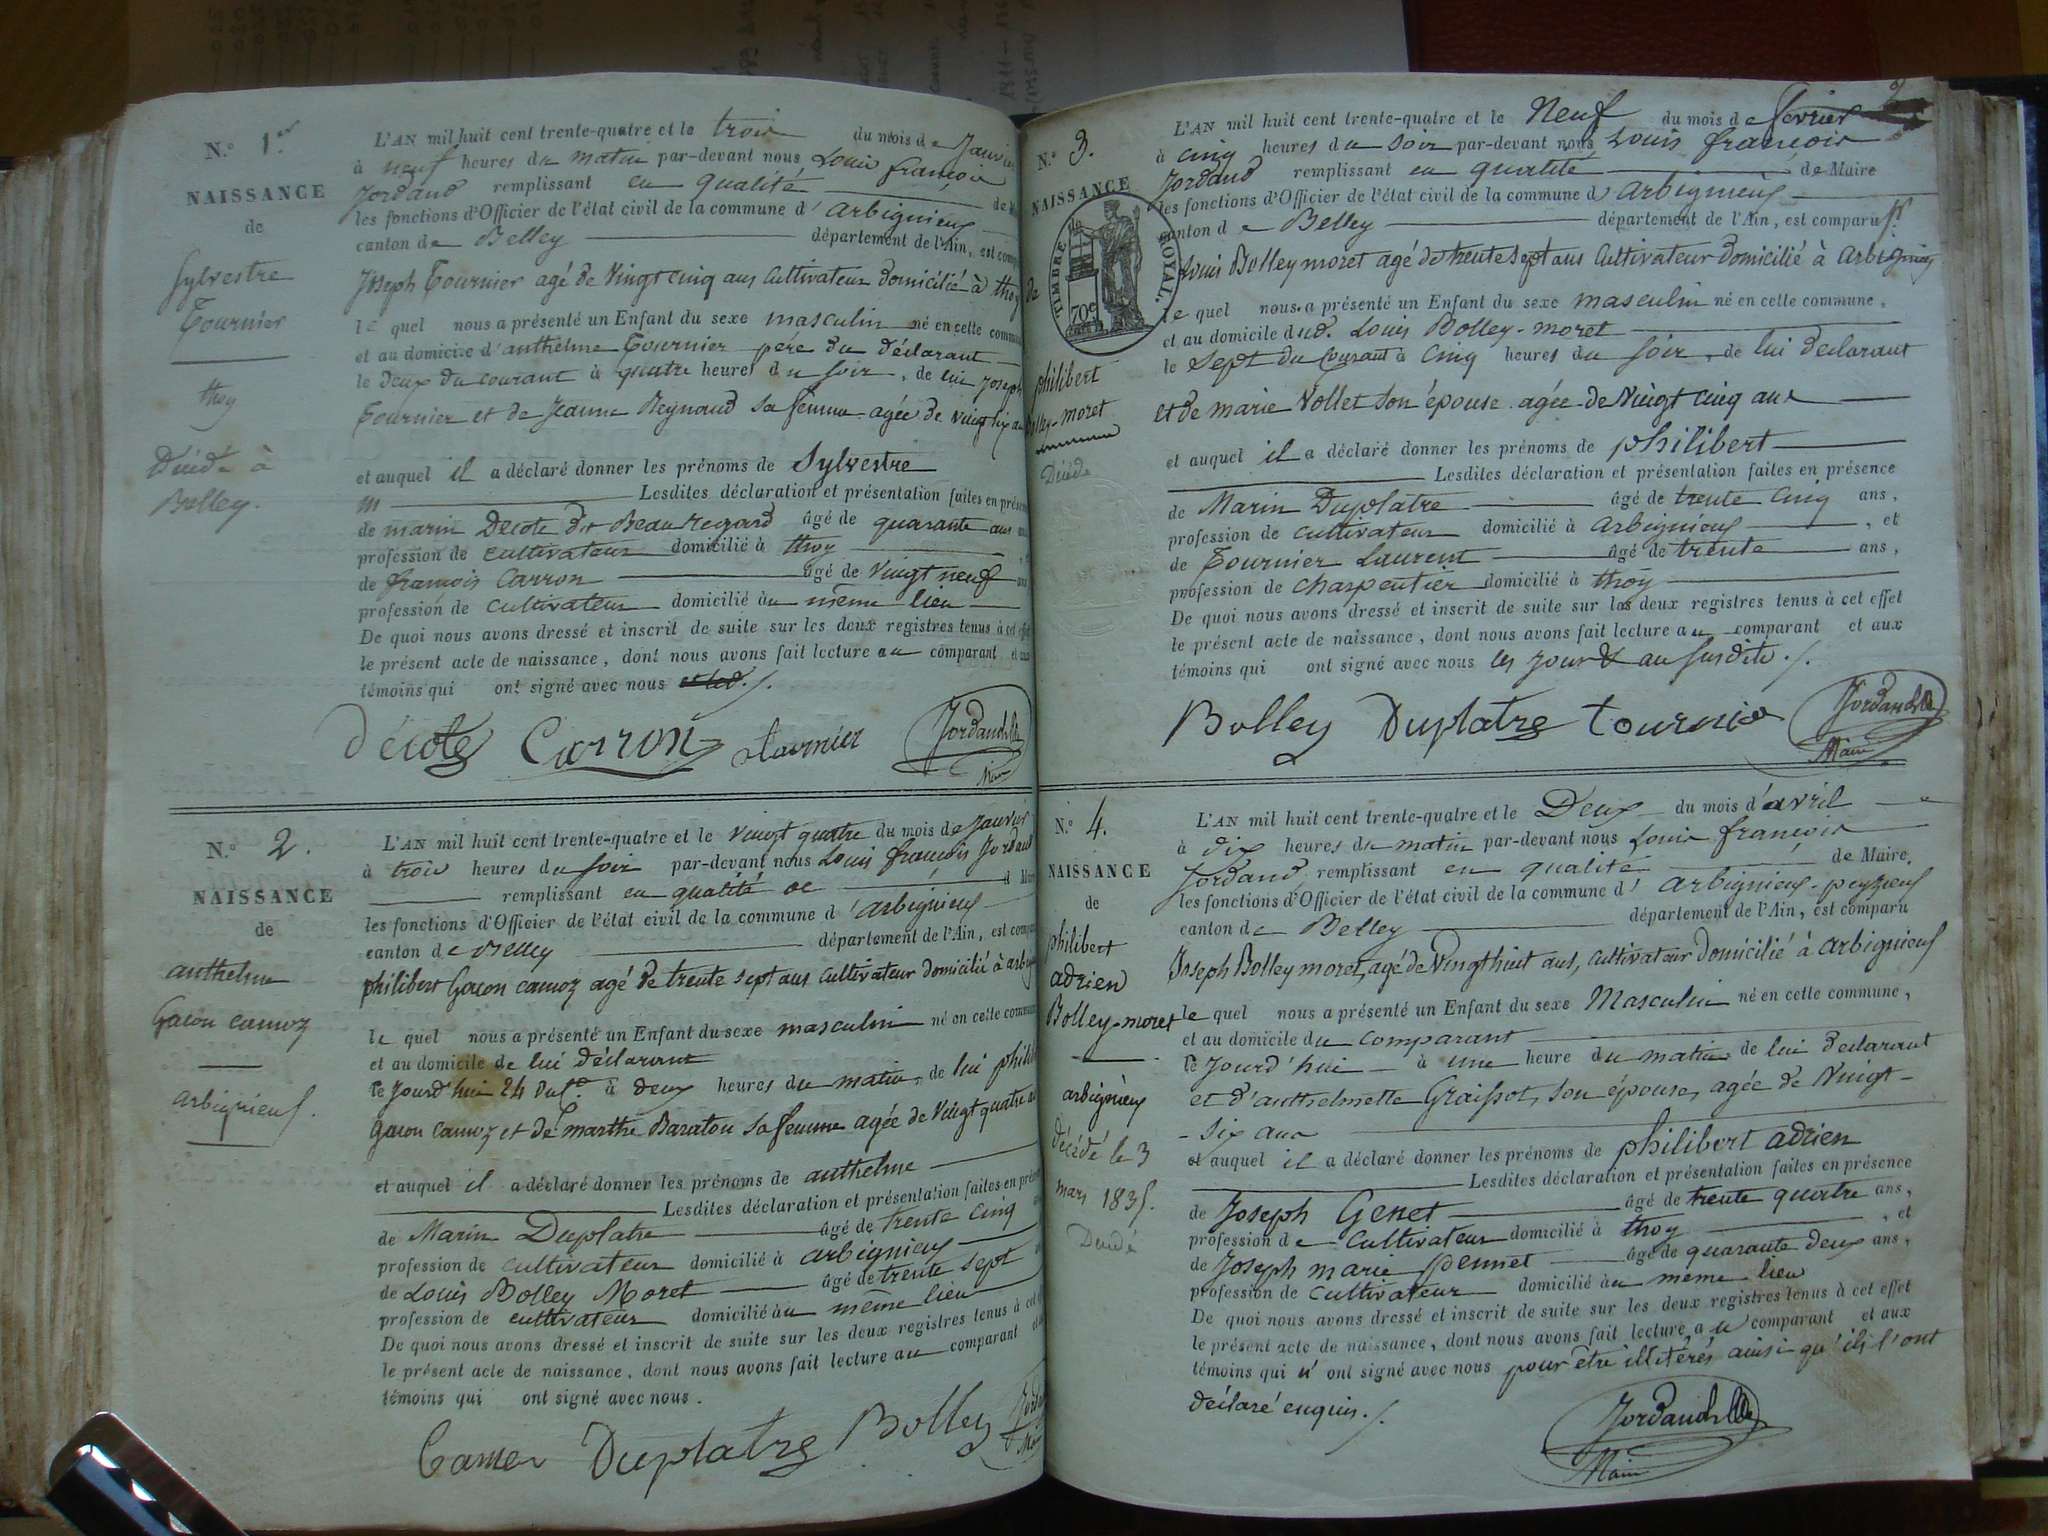 N.º 1.er
NAISSANCE
de
Sylvestre
Tournier
thoy
Décédé à
Belley.
L'AN mil huit cent trente-quatre et le trois du mois de Janvier
à neuf heures du matin par-devant nous Louis françois
Jordand remplissant en qualité de
les fonctions d'Officier de l'état civil de la commune d'arbignieux
canton de Belley département de l'Ain, est
Joseph Tournier agé de Vingt cinq ans Cultivateur domicilié à thoy
le quel nous a présenté un Enfant du sexe masculin né en cette
et au domicile d'anthelme Tournier père du déclarant
le deux du courant à quatre heures du soir, de lui Joseph
Tournier et de Jeanne Reynaud sa femme agée de vingt six
et auquel il a déclaré donner les prénoms de Sylvestre
Lesdites déclaration et présentation faites en
de marin Decote dit Beauregard âgé de quarante ans
profession de cultivateur domicilié à thoy
de françois Carron âgé de Vingt neuf
profession de cultivateur domicilié au même lieu
De quoi nous avons dressé et inscrit de suite sur les deux registres tenus à cet effet
le présent acte de naissance, dont nous avons fait lecture au comparant et aux
témoins qui ont signé avec nous
décote Carron tournier Jordand
Maire
N.º 2.
NAISSANCE
de
anthelme
Gacon camoz
arbignieux.
L'AN mil huit cent trente-quatre et le vingt quatre du mois de Janvier
à trois heures du soir par-devant nous Louis françois Jordand
remplissant en qualité de
les fonctions d'Officier de l'état civil de la commune d'arbignieux
canton de Belley département de l'Ain, est
philibert Gacon camoz agé de trente sept ans cultivateur domicilié à
le quel nous a présenté un Enfant du sexe masculin né en cette
et au domicile de lui déclarant
le Jourd'hui 24 du à deux heures du matin, de lui
Gacon camoz et de marthe Baraton sa femme agée de Vingt quatre
et auquel il a déclaré donner les prénoms de anthelme
Lesdites déclaration et présentation faites en
de Marin Duplatre âgé de trente cinq
profession de cultivateur domicilié à arbignieux
de Louis Bolley Moret âgé de trente sept
profession de cultivateur domicilié au même lieu
De quoi nous avons dressé et inscrit de suite sur les deux registres tenus à cet
le présent acte de naissance, dont nous avons fait lecture au comparant
témoins qui ont signé avec nous.
Camoz Duplatre Bolley
N.º 3.
NAISSANCE
de
TIMBRE ROYAL.
70c
philibert
Bolley-moret
Décédé
L'AN mil huit cent trente-quatre et le Neuf du mois de février
à cinq heures du soir par-devant nous Louis françois
Jordand remplissant en qualité de Maire
les fonctions d'Officier de l'état civil de la commune d'arbignieux
canton de Belley département de l'Ain, est comparu
Louis Bolley moret agé de trente sept ans Cultivateur domicilié à Arbignieux
le quel nous a présenté un Enfant du sexe masculin né en cette commune,
et au domicile dud. Louis Bolley-moret
le Sept du Courant à Cinq heures du soir, de lui declarant
et de marie Vollet son épouse agée de Vingt cinq ans
et auquel il a déclaré donner les prénoms de philibert
Lesdites déclaration et présentation faites en présence
de Marin Duplatre âgé de trente cinq ans,
profession de cultivateur domicilié à arbignieux, et
de Tournier Laurent âgé de trente ans,
profession de charpentier domicilié à thoy
De quoi nous avons dressé et inscrit de suite sur les deux registres tenus à cet effet
le présent acte de naissance, dont nous avons fait lecture au comparant et aux
témoins qui ont signé avec nous les jour & an susdits./.
Bolley Duplatre tournier Jordand
Maire
N.º 4.
NAISSANCE
de
philibert
adrien
Bolley-moret
arbignieux
décédé le 3
mars 1835.
Décédé
L'AN mil huit cent trente-quatre et le Deux du mois d'avril
à dix heures du matin par-devant nous Louis françois
Jordand remplissant en qualité de Maire,
les fonctions d'Officier de l'état civil de la commune d'arbignieux-peyzieux
canton de Belley département de l'Ain, est comparu
Joseph Bolley moret, agé de Vingt huit ans, cultivateur domicilié à arbignieux
le quel nous a présenté un Enfant du sexe Masculin né en cette commune,
et au domicile du comparant
le Jourd'hui à une heure du matin de lui declarant
et d'anthelmette Graissot, son épouse, agée de Vingt-
-six ans
et auquel il a déclaré donner les prénoms de philibert adrien
Lesdites déclaration et présentation faites en présence
de Joseph Genet âgé de trente quatre ans,
profession de Cultivateur domicilié à thoy, et
de Joseph marie pennet âgé de quarante deux ans,
profession de cultivateur domicilié au même lieu
De quoi nous avons dressé et inscrit de suite sur les deux registres tenus à cet effet
le présent acte de naissance, dont nous avons fait lecture au comparant et aux
témoins qui n'ont signé avec nous pour être illitérés ainsi qu'ils l'ont
déclaré enquis./.
Jordand
Maire